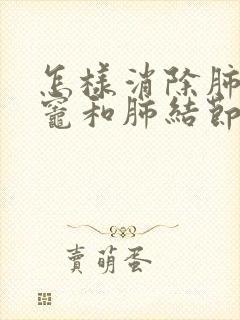 怎樣消除肺
竈和肺結節
賣萌蛋